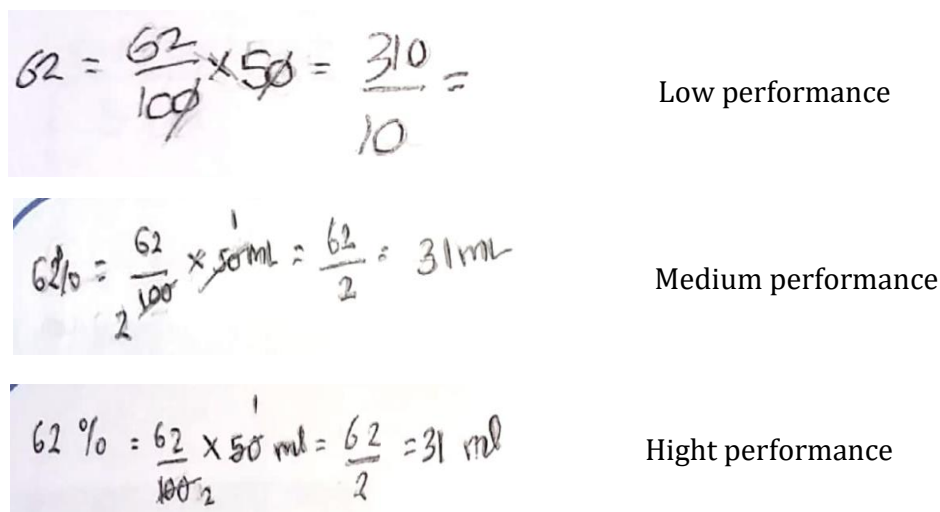 62 = 62/100 × 50 = 310/10 =
Low performance
62% = 62/100 × 50 ml = 62/2 = 31 ml
2
1
Medium performance
62 % = 62/100 × 50 ml = 62/2 = 31 ml
2
1
Hight performance